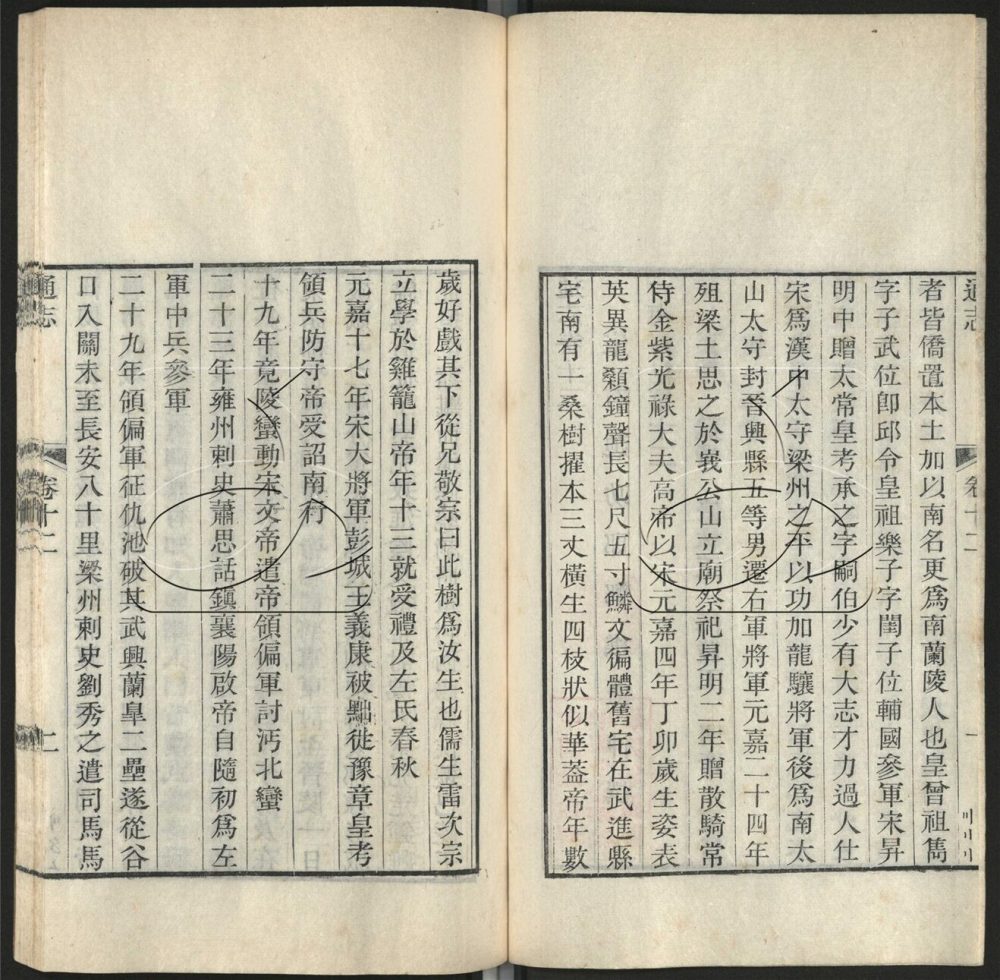 通志
卷十二
一
者皆僑置本土加以南名更爲南蘭陵人也皇曾祖雋
字子武位卽邱令皇祖樂子字閨子位輔國參軍宋昇
明中贈太常皇考承之字嗣伯少有大志才力過人仕
宋爲漢中太守梁州之平以功加龍驤將軍後爲南太
山太守封晉興縣五等男遷右軍將軍元嘉二十四年
殂梁土思之於峩公山立廟祭祀昇明二年贈散騎常
侍金紫光祿大夫高帝以宋元嘉四年丁卯歲生姿表
英異龍顙鐘聲長七尺五寸鱗文徧體舊宅在武進縣
宅南有一桑樹擢本三丈橫生四枝狀似華蓋帝年數
歲好戲其下從兄敬宗曰此樹爲汝生也儒生雷次宗
立學於雞籠山帝年十三就受禮及左氏春秋
元嘉十七年宋大將軍彭城王義康被黜徙豫章皇考
領兵防守帝受詔南行
十九年竟陵蠻動宋文帝遣帝領偏軍討沔北蠻
二十三年雍州刺史蕭思話鎮襄陽啟帝自隨初爲左
軍中兵參軍
二十九年領偏軍征仇池破其武興蘭臯二壘遂從谷
口入關未至長安八十里梁州刺史劉秀之遣司馬馬
通志
卷十二
二